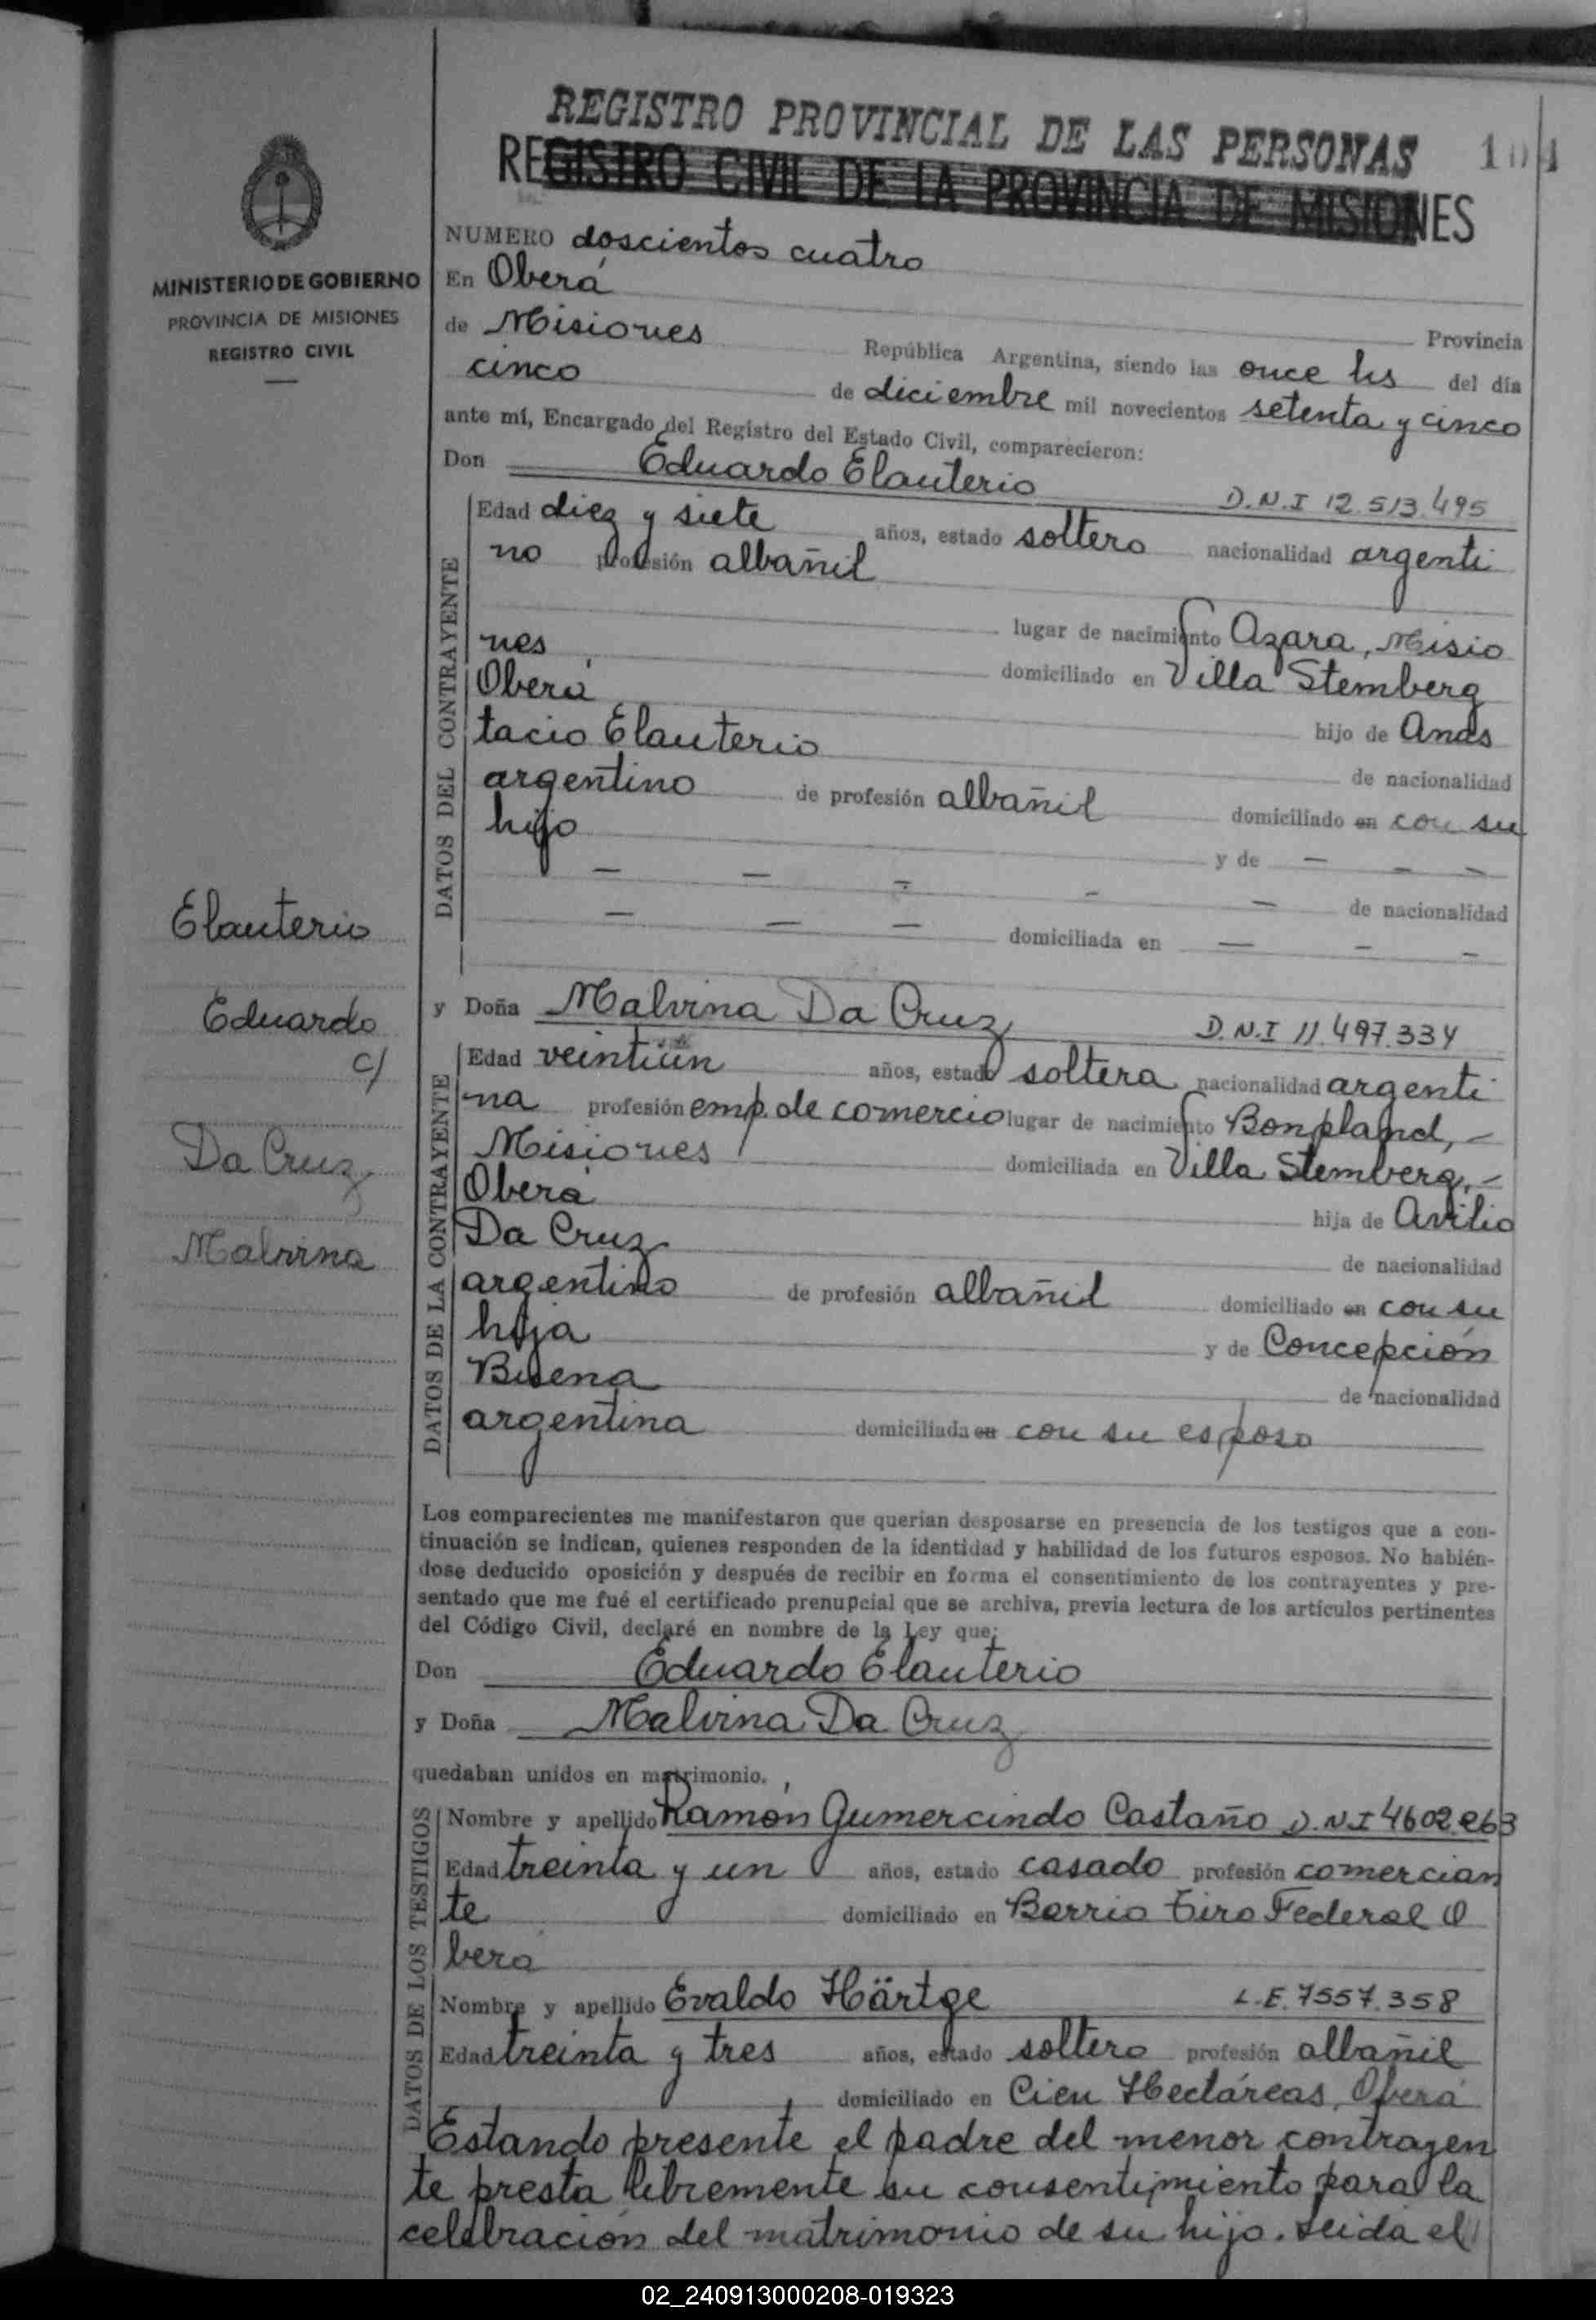 REGISTRO PROVINCIAL DE LAS PERSONAS
104
REGISTRO CIVIL DE LA PROVINCIA DE MISIONES
MINISTERIO DE GOBIERNO
PROVINCIA DE MISIONES
REGISTRO CIVIL
NUMERO doscientos cuatro
En Oberá Provincia
de Misiones República Argentina, siendo las once hs del día
cinco de diciembre mil novecientos setenta y cinco
ante mí, Encargado del Registro del Estado Civil, comparecieron:
Don Eduardo Elauterio D.N.I 12.513.495
DATOS DEL CONTRAYENTE
Edad diez y siete años, estado soltero nacionalidad argenti
no profesión albañil
lugar de nacimiento Azara, Misio
nes domiciliado en Villa Stemberg
Oberá hijo de Anas
tacio Elauterio de nacionalidad
argentino de profesión albañil domiciliado en con su
hijo y de — — —
— — — — — de nacionalidad
— — — domiciliada en — — —
Elauterio
Eduardo
c/
Da Cruz
Malvina
y Doña Malvina Da Cruz D.N.I 11.497.334
DATOS DE LA CONTRAYENTE
Edad veintiún años, estado soltera nacionalidad argenti
na profesión emp. de comercio lugar de nacimiento Bonpland, –
Misiones domiciliada en Villa Stemberg, –
Oberá hija de Avilio
Da Cruz de nacionalidad
argentino de profesión albañil domiciliado en con su
hija y de Concepción
Buena de nacionalidad
argentina domiciliada en con su esposo
Los comparecientes me manifestaron que querian desposarse en presencia de los testigos que a con-
tinuación se indican, quienes responden de la identidad y habilidad de los futuros esposos. No habién-
dose deducido oposición y después de recibir en forma el consentimiento de los contrayentes y pre-
sentado que me fué el certificado prenupcial que se archiva, previa lectura de los artículos pertinentes
del Código Civil, declaré en nombre de la Ley que;
Don Eduardo Elauterio
y Doña Malvina Da Cruz
quedaban unidos en matrimonio.
DATOS DE LOS TESTIGOS
Nombre y apellido Ramón Gumercindo Castaño D.N.I 4602.263
Edad treinta y un años, estado casado profesión comercian
te domiciliado en Barrio Tiro Federal O
bera
Nombre y apellido Evaldo Härtge L.E. 7557.358
Edad treinta y tres años, estado soltero profesión albañil
domiciliado en Cien Hectáreas, Oberá
Estando presente el padre del menor contrayen
te presta libremente su consentimiento para la
celebración del matrimonio de su hijo. Leida el
02_240913000208-019323